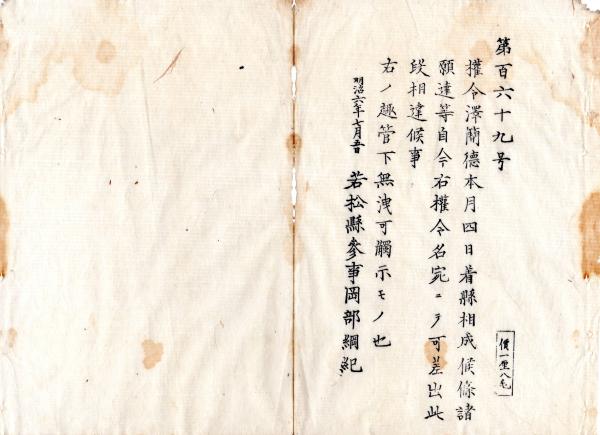 第百六十九号
權令澤簡徳本月四日着縣相成候條諸
願達等自今右權令名宛ニヲ可差出此
段相達候事
右ノ趣管下無洩可觸示モノ也
明治六年七月五日
若松縣參事岡部綱紀
價一厘八毛